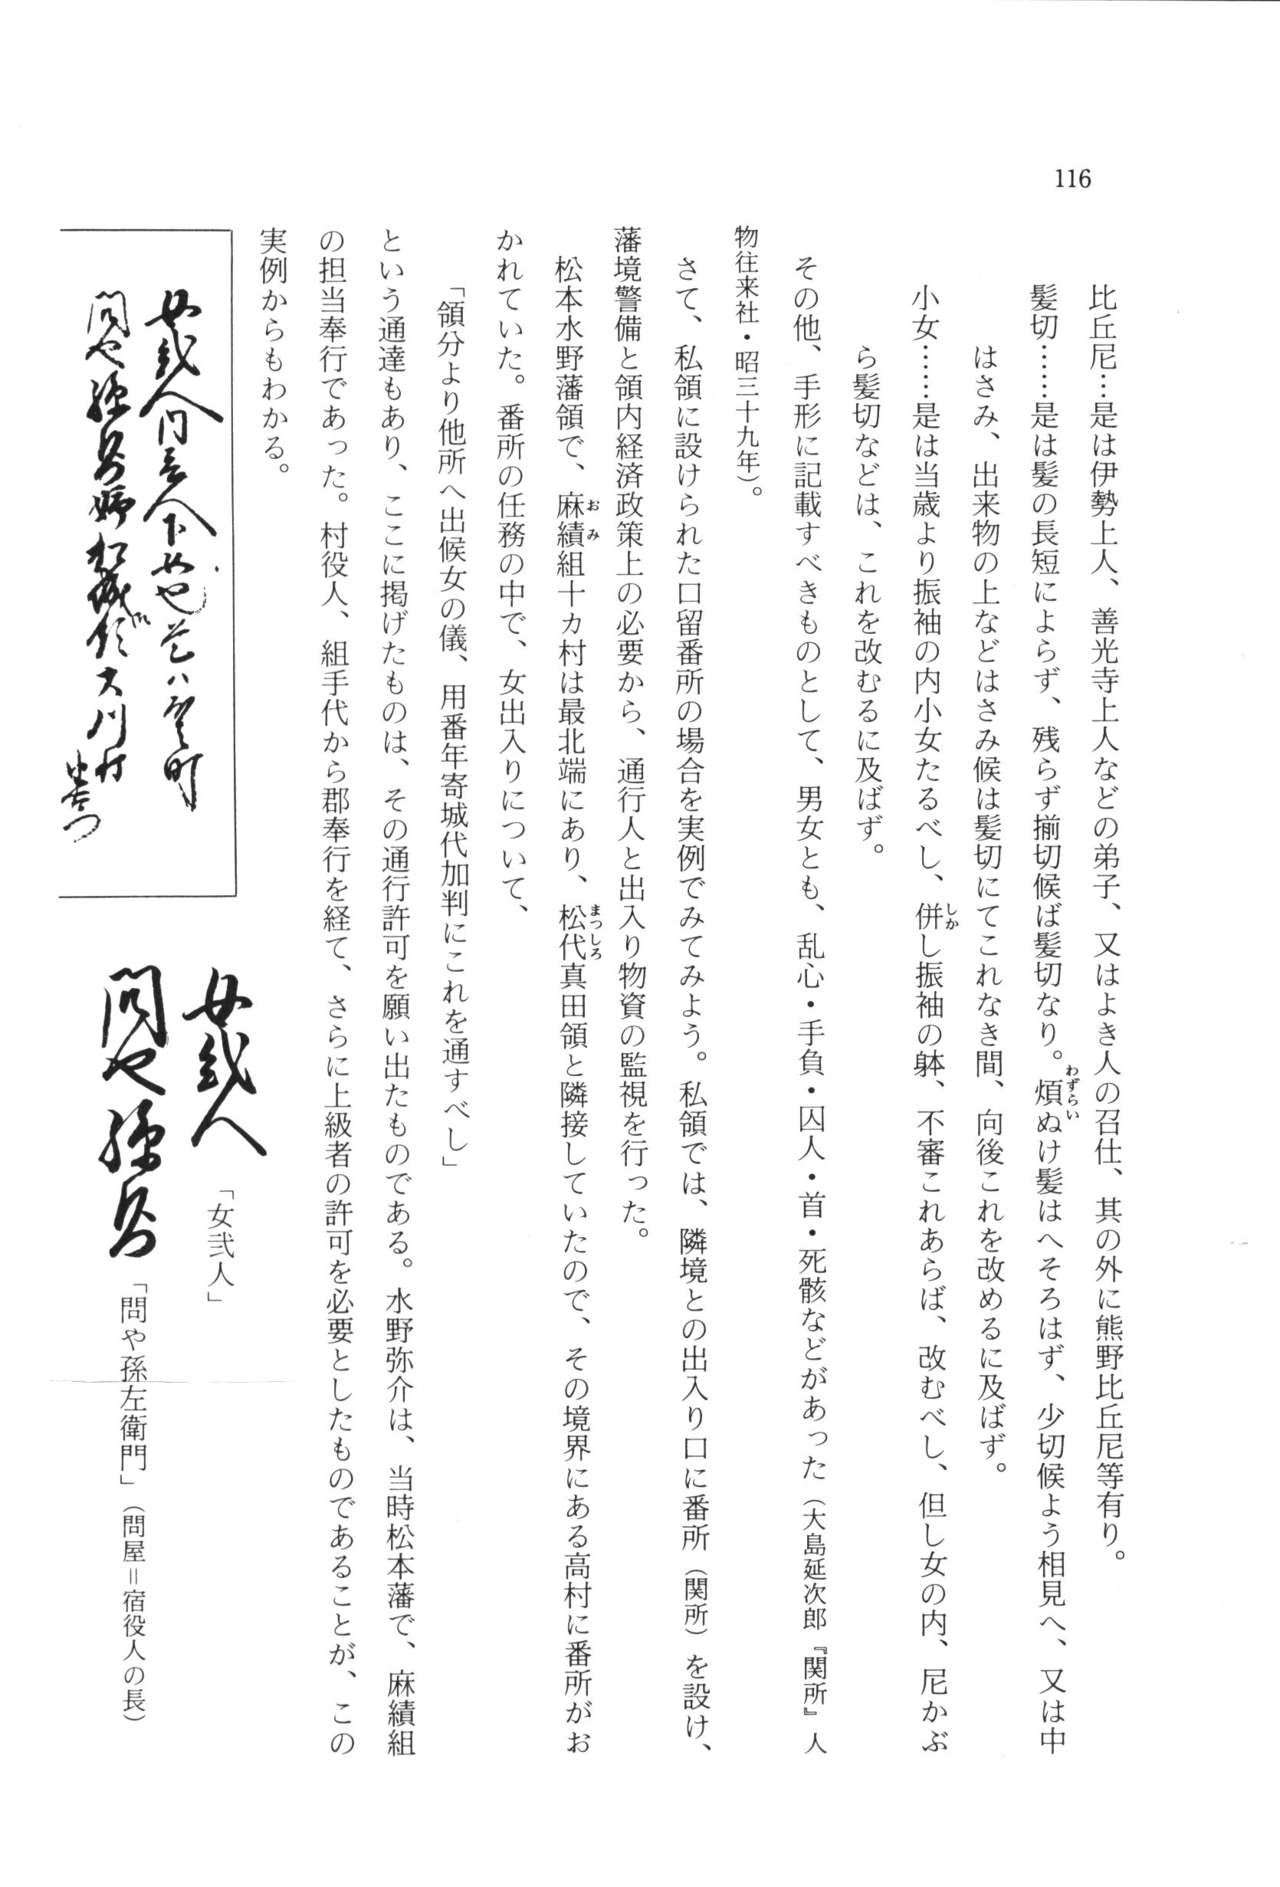 116
比丘尼…是は伊勢上人、善光寺上人などの弟子、又はよき人の召仕、其の外に熊野比丘尼等有り。
髪切……是は髪の長短によらず、残らず揃切候ば髪切なり。煩ぬけ髪はへそろはず、少切候よう相見へ、又は中
わずらい
はさみ、出来物の上などはさみ候は髪切にてこれなき間、向後これを改めるに及ばず。
小女……是は当歳より振袖の内小女たるべし、併し振袖の躰、不審これあらば、改むべし、但し女の内、尼かぶ
しか
ら髪切などは、これを改むるに及ばず。
その他、手形に記載すべきものとして、男女とも、乱心・手負・囚人・首・死骸などがあった（大島延次郎『関所』人
物往来社・昭三十九年）。
さて、私領に設けられた口留番所の場合を実例でみてみよう。私領では、隣境との出入り口に番所（関所）を設け、
藩境警備と領内経済政策上の必要から、通行人と出入り物資の監視を行った。
松本水野藩領で、麻績組十カ村は最北端にあり、松代真田領と隣接していたので、その境界にある高村に番所がお
おみ
まつしろ
かれていた。番所の任務の中で、女出入りについて、
「領分より他所へ出候女の儀、用番年寄城代加判にこれを通すべし」
という通達もあり、ここに掲げたものは、その通行許可を願い出たものである。水野弥介は、当時松本藩で、麻績組
の担当奉行であった。村役人、組手代から郡奉行を経て、さらに上級者の許可を必要としたものであることが、この
実例からもわかる。
女弐人
「女弐人」
問や孫左衛門
「問や孫左衛門」（問屋＝宿役人の長）
女弐人内壱人下女也是ハ
問や孫左衛門姉松城領大川村